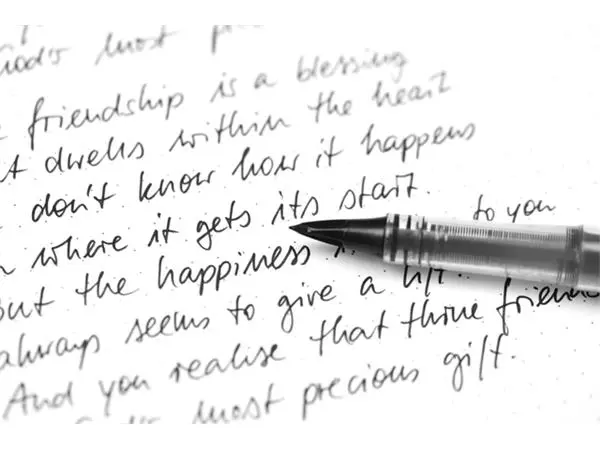 God's most
friendship is a blessing
dwells within the heart
don't know how it happens
where it gets its start.
But the happiness to you
always seems to give a lift.
And you realise that thine
God's most precious gift.